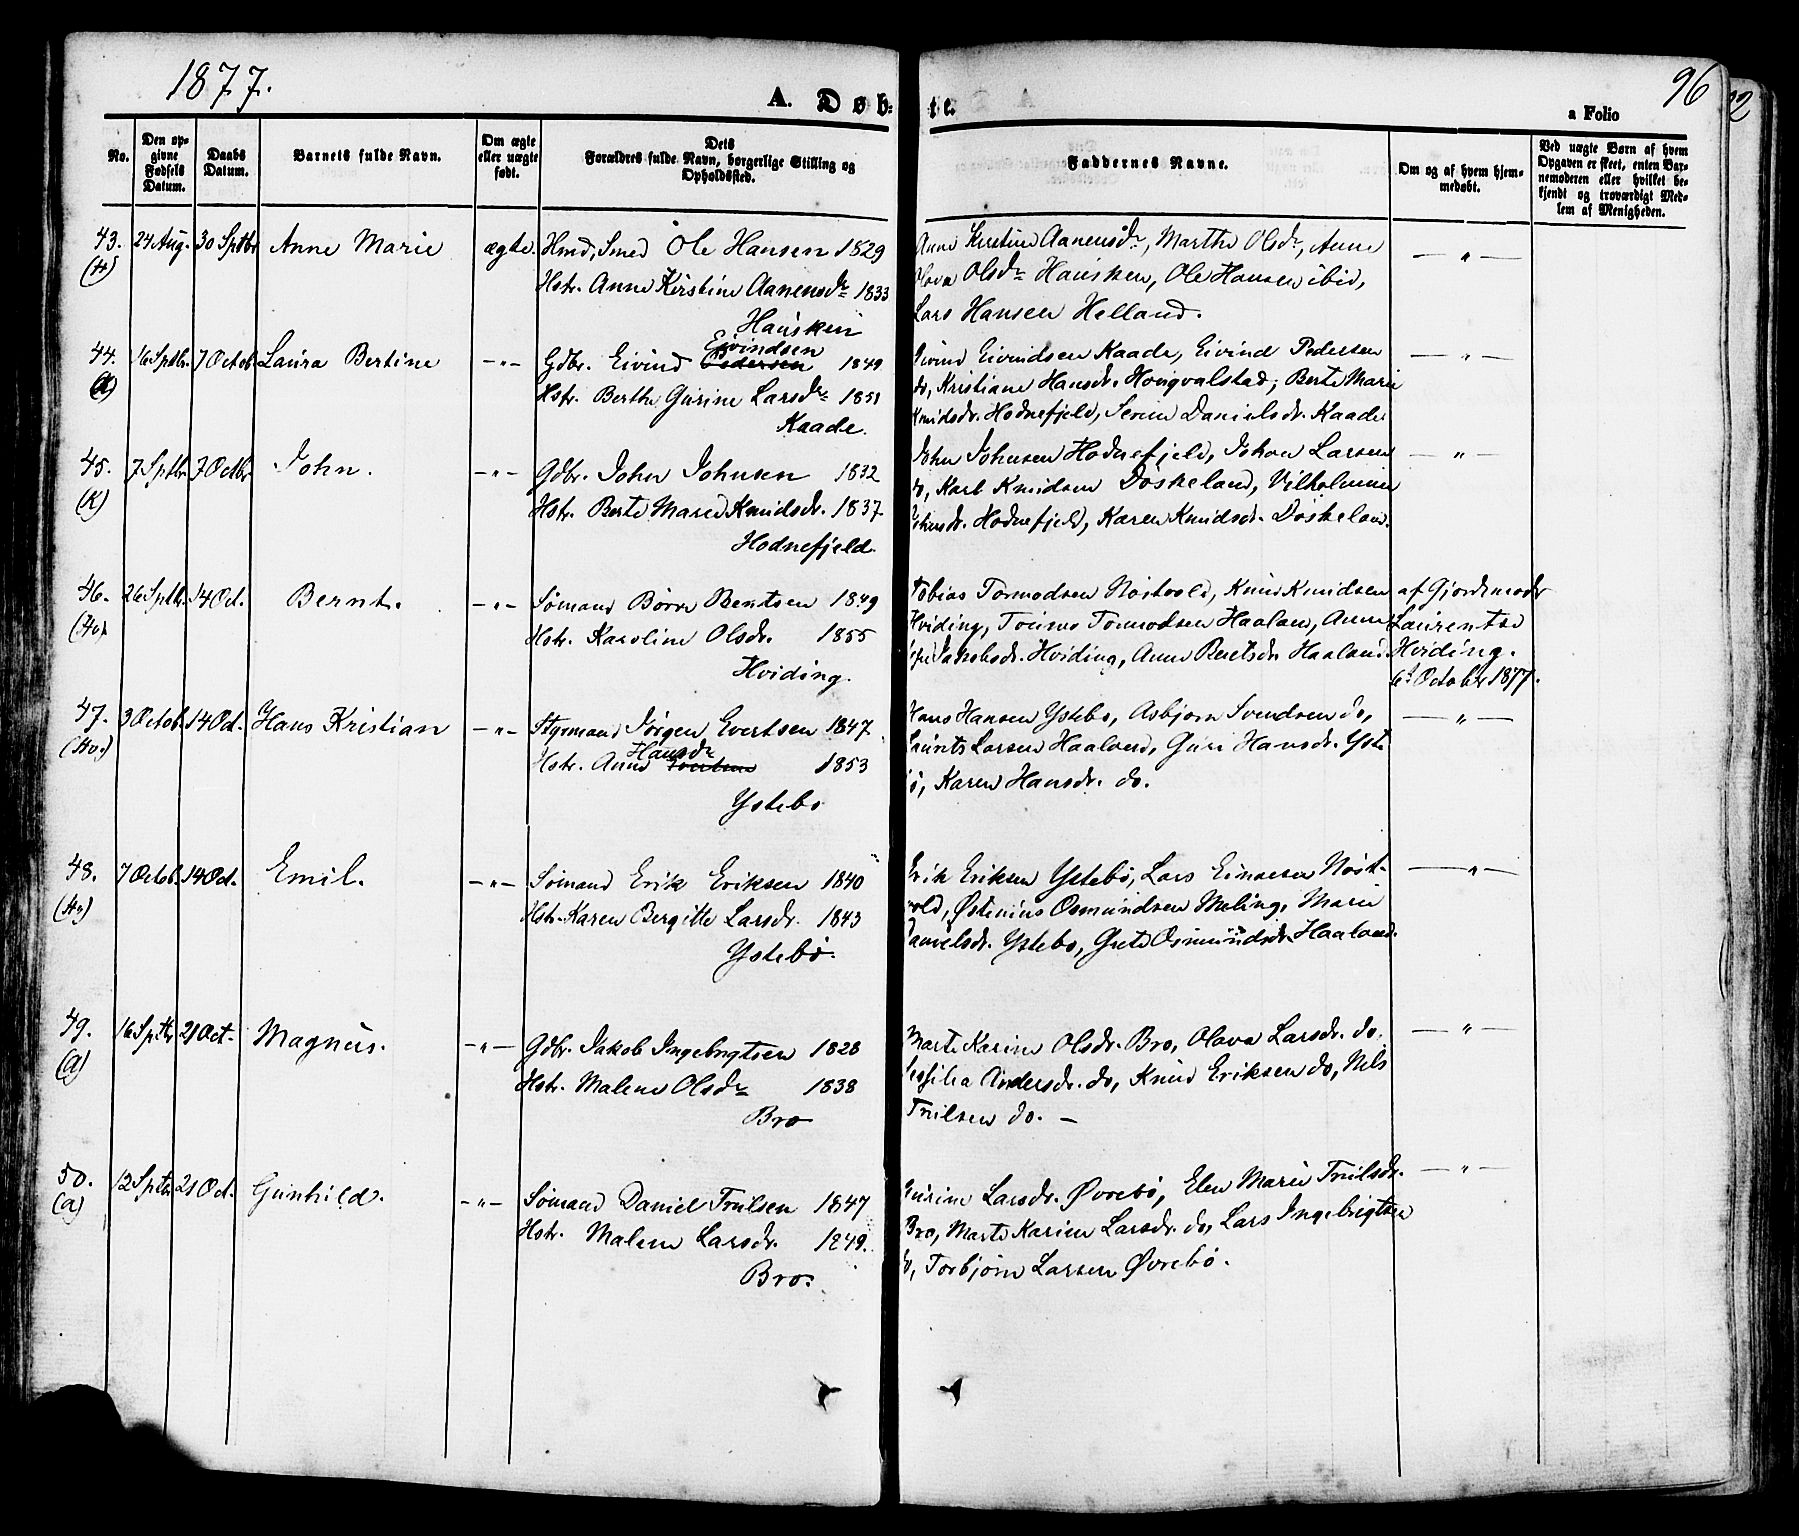 1877.
96
A. Døb-
te.
a Folio
No.
Den op-
givne
Fødsels
Datum.
Daabs
Datum.
Barnets fulde Navn.
Om ægte
eller uægte
født.
Dets
Forældres fulde Navn, borgerlige Stilling og
Opholdssted.
Faddernes Navne.
Om og af hvem hjem-
medøbt.
Ved uægte Børn af hvem
Opgaven er skeet, enten Bar-
nemoderen eller hvilket be-
kjendt og troværdigt Med-
lem af Menigheden.
43. 24 Aug. 30 Sptbr Anne Marie ægte. Hmd, Smed Ole Hansen 1829
(H)
Hstr. Anne Kirstine Aanensdr 1833
Hausken
Anne Kirstine Aanensdr, Marthe Olsdr, Anne
Olava Olsdr Hausken, Ole Hansen ibid,
Lars Hansen Helland.
— " —
44. 16 Sptbr. 7 Octob. Laura Bertine -"-
Eivindsen
Gdbr. Eivind Pedersen 1849
Hstr. Berthe Gurine Larsdr 1851
Kaade.
Eivind Eivindsen Kaade, Eivind Pedersen
do, Kristiane Hansdr. Houqvalstad, Berte Marie
Knudsdr. Hodnefjeld, Serine Danielsdr. Kaade.
— " —
45. 7 Sptbr 7 Octbr John. -"- Gdbr. John Johnsen 1832
(K)
Hstr. Berte Marie Knudsdr. 1837
Hodnefjeld.
John Johnsen Hodnefjeld, Johan Larsen
do, Karl Knudsen Doskeland, Vilhelmine
Johnsdr. Hodnefjeld, Karen Knudsdr. Doskeland.
— " —
46. 26 Sptbr. 14 Oct. Bernt. -"- Sømand Børre Bentsen 1849
(Hv)
Hstr. Karoline Olsdr. 1855
Hviding.
Tobias Tormodsen Nostvold, Knud Knudsen
Hviding, Tormod Haaland, Anne
Jakobsdr. Hviding, Anne Bentsdr Haaland.
af Gjordemoder
Laurentse
Hviding.
6t October 1877.
47. 3 Octob. 14 Oct. Hans Kristian -"- Styrmand Jörgen Evertsen 1847
(Hv.)
Hansdr
Hstr. Anne 1853
Ystebø
Hans Hansen Ystebø, Asbjørn Svendsen do,
Larsen Haaland, Guri Hansdr. Yste
bø, Karen Hansdr. do.
— " —
48. 7 Octob. 14 Oct. Emil. -"- Sømand Erik Eriksen 1840
(Hv)
Hstr. Karen Bergitte Larsdr. 1843
Ystebø.
Erik Eriksen Ystebø, Lars Einarsen Nöst-
vold, Østenius Osmundsen Meling, Marie
Samuelsdr. Ystebø, Grete Osmundsdr. Haaland.
— " —
49. 16 Sptbr 21 Oct. Magnus. -"- Gdbr. Jakob Ingebrigtsen 1828
(A)
Hstr. Malene Olsdr 1838
Bro
Marte Karine Olsdr. Bro, Olava Larsdr. do.
Andersdr. do, Knud Eriksen do, Nils
Truilsen do. —
— " —
50. 12 Sptbr 21 Oct. Gunhild. -"- Sømand Daniel Truilsen 1847
(A)
Hstr. Malene Larsdr. 1849.
Bro.
Gurine Larsdr. Øvrebø, Elen Marie Truilsdr.
Bro, Marte Karine Larsdr. do, Lars Ingebrigtsen
do, Torbjørn Larsen Øvrebø.
— " —